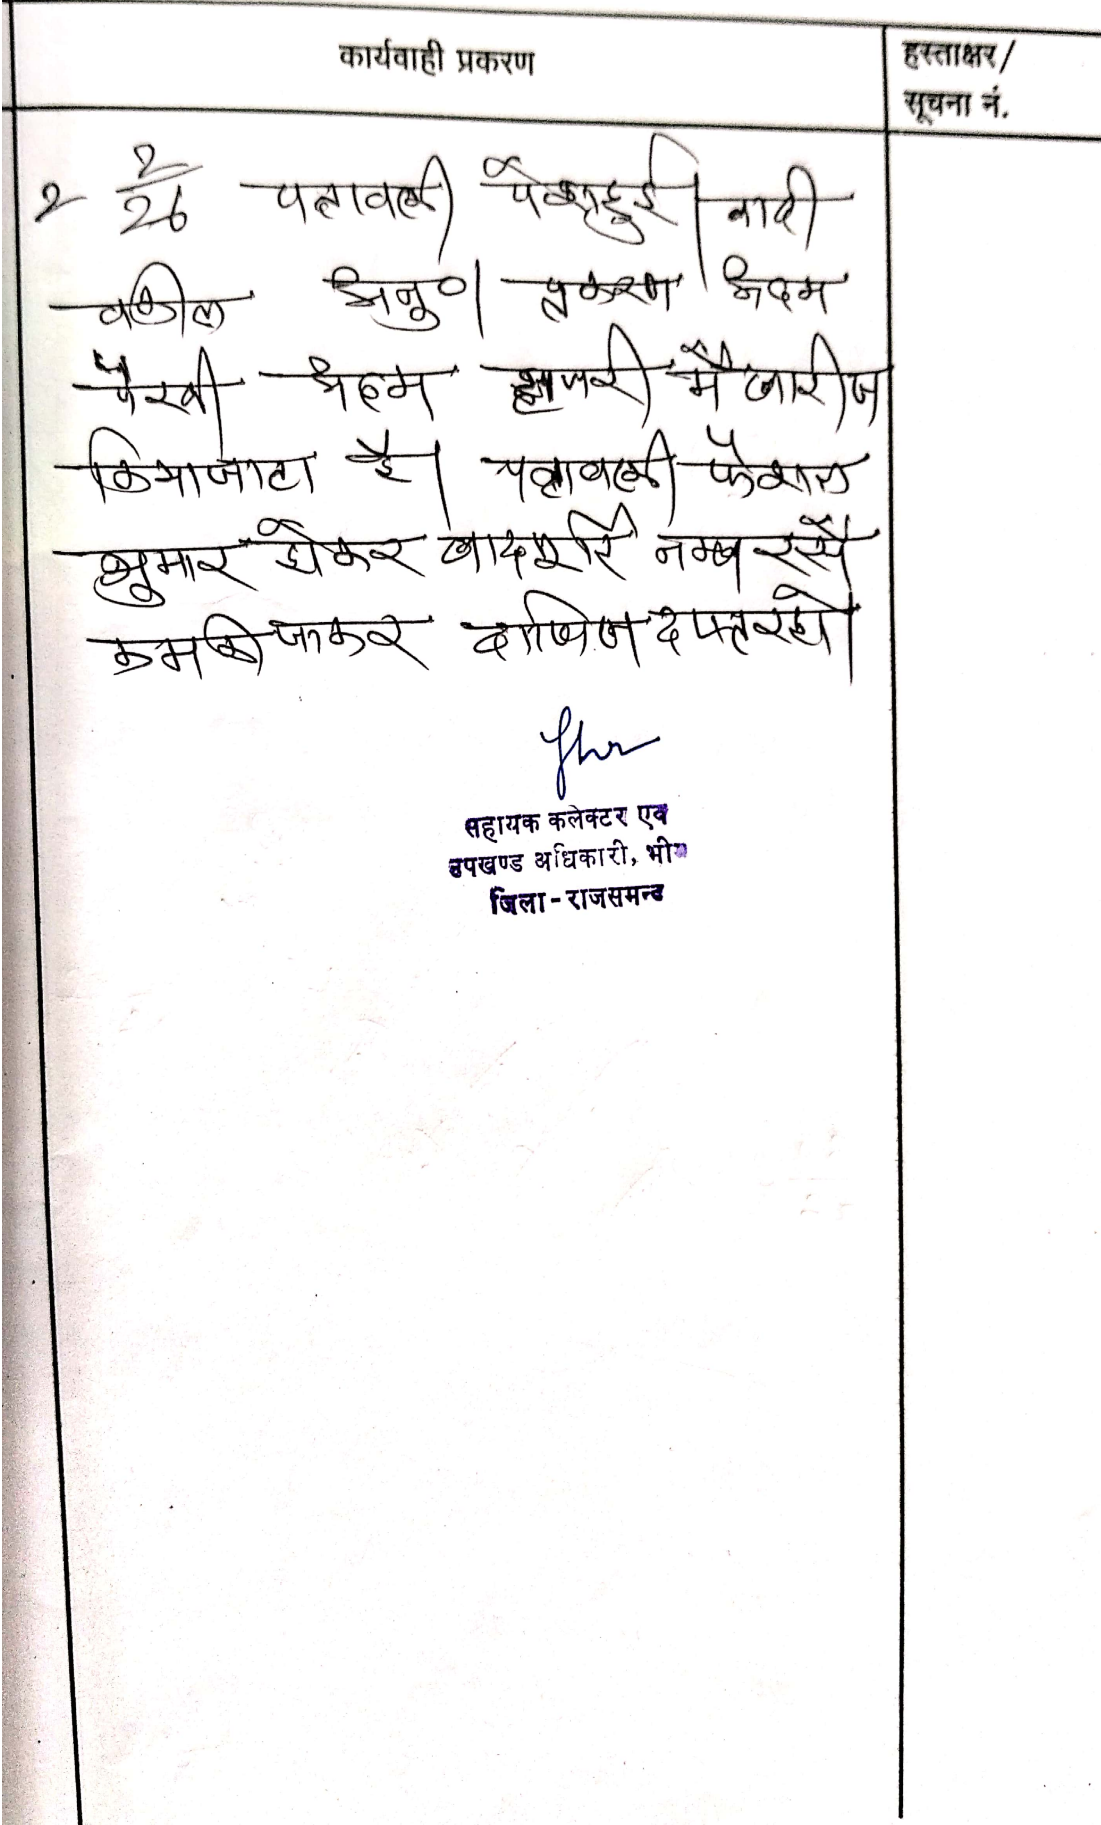 कार्यवाही प्रकरण
हस्ताक्षर/
सूचना नं.
2 2/26 पत्रावली पेश हुई। वादी
वकील अनु०। प्रकरण अदम
पैरवी अदम हाजरी मै खारीज
किया जाता है। पत्रावली फैशल
शुमार होकर बाद पूर्ति नम्बर सै
कम की जाकर दाखिल दफ्तर हो।
सहायक कलेक्टर एवं
उपखण्ड अधिकारी, भीम
जिला-राजसमन्द